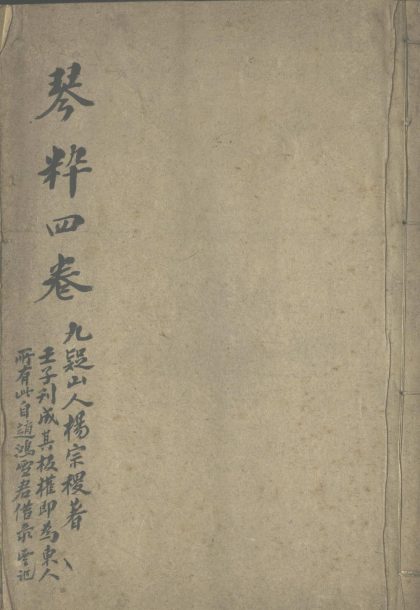 琴粹四卷
九疑山人楊宗稷著
壬子刊成其板權即為東人
所有此自道鴻雪君借录